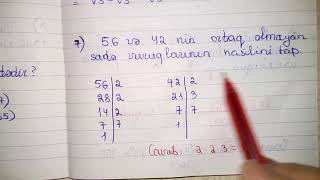 7) 56 və 42 nin ortaq olmayan
sadə vuruqlarının hasilini tap.
dədir?
56 | 2
28 | 2
14 | 2
7 | 7
1
42 | 2
21 | 3
7 | 7
1
Cavab: 2·2·3 =